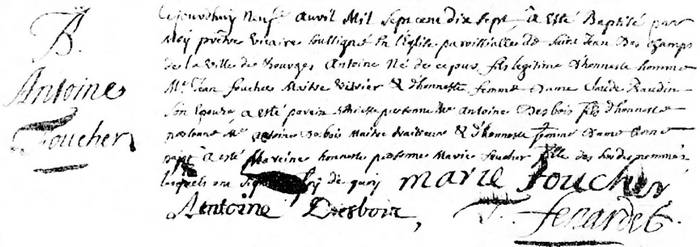 B.
Antoine
Foucher
Cejourdhuy neuf avril Mil Sept cent dix sept à esté Baptisé par
Moy prêtre vicaire soussigné En l'Eglise parroissialle de Saint Jean Des champs
de la ville de Bourges Antoine Né de ce jour fils legitime d'honneste homme
Me Jean foucher Maitre vitrier & d'honneste femme Dame Claude Baudin
Son Epouse à esté parein honneste personne Me Antoine Desbois fils d'honneste
personne Me Antoine Desbois Maitre traitteur & d'honneste femme Dame Anne
à esté Mareine honneste personne Marie foucher fille des susdits nommés
lesquels ont signé de quoy marie foucher
Antoine Desbois,
ferardet.